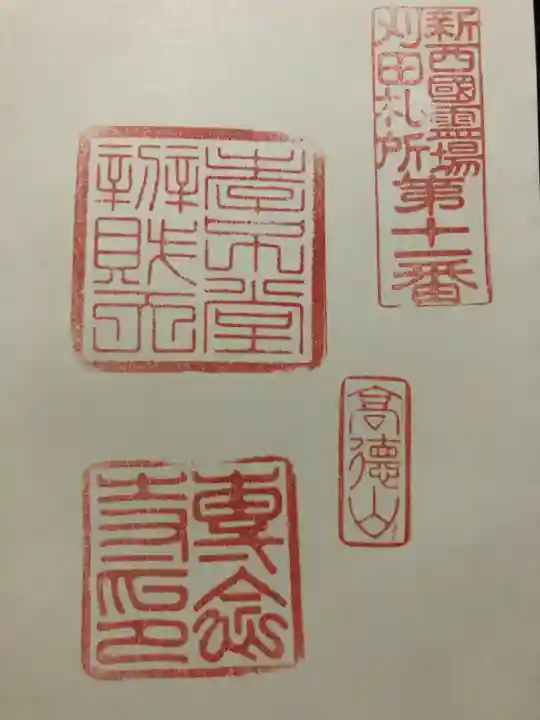 新西國霊場
刈田札所
第十一番
辨財天
高徳山
專念
寺印